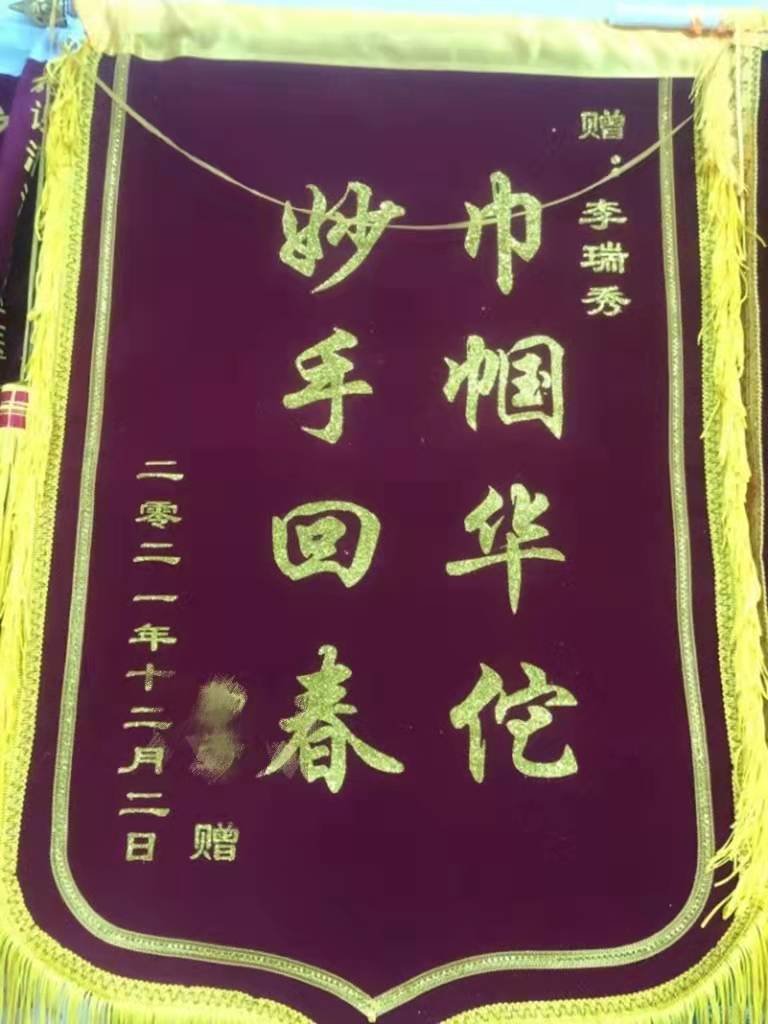 赠：李瑞秀
巾帼华佗
妙手回春
赠
二零二一年十二月二日